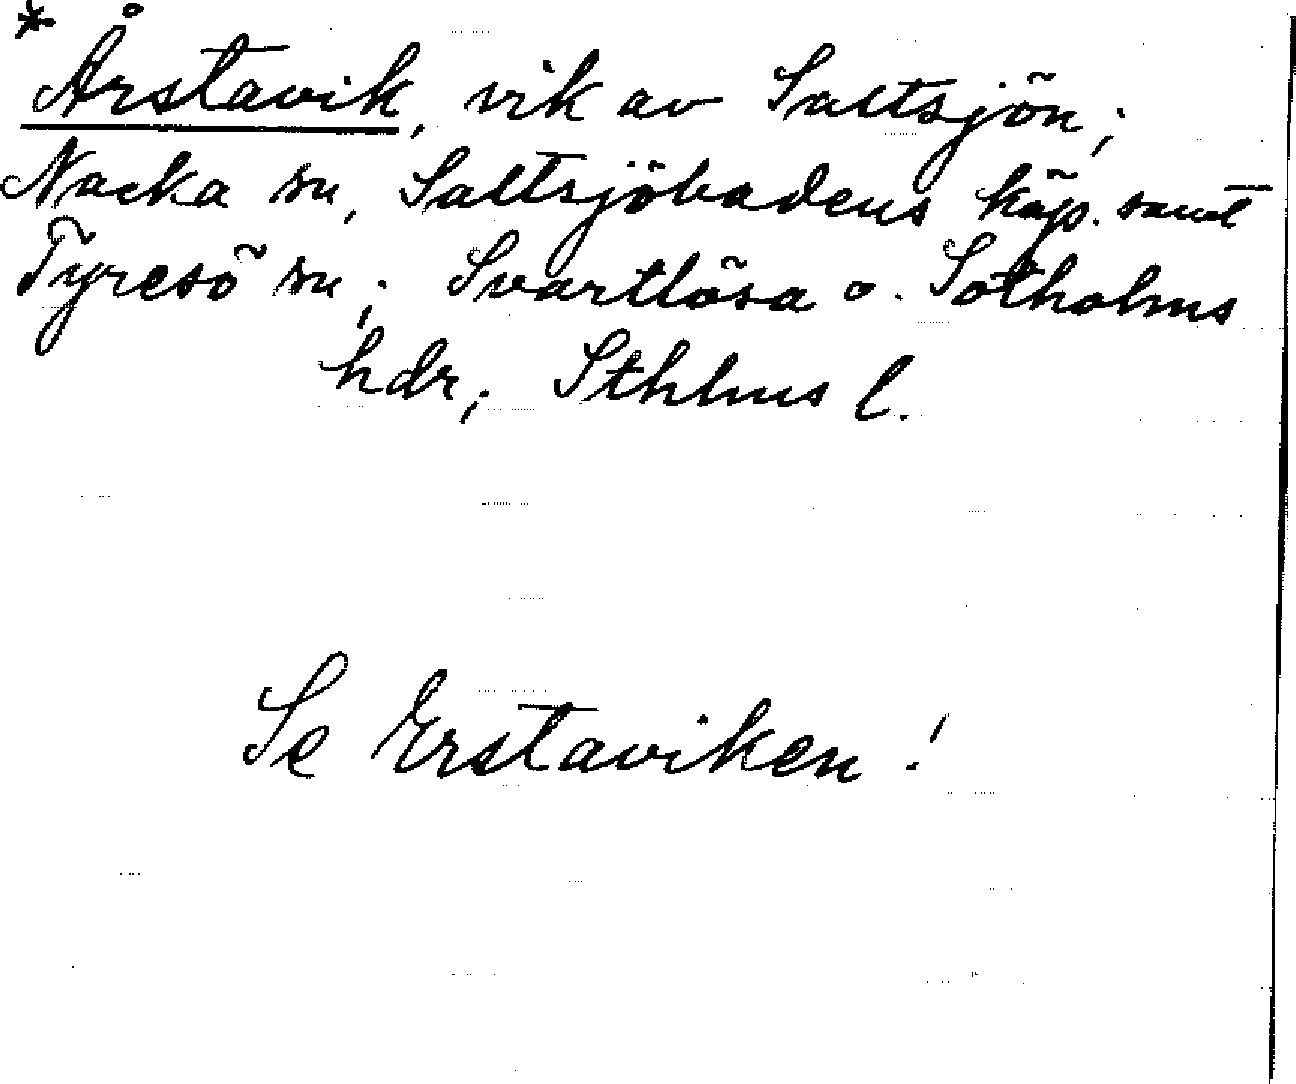 * Årstavik, vik av Saltsjön;
Nacka sn, Saltsjöbadens köp. samt
Tyresö sn; Svartlösa o. Sotholms
hdr; Sthlms l.
Se Erstaviken!